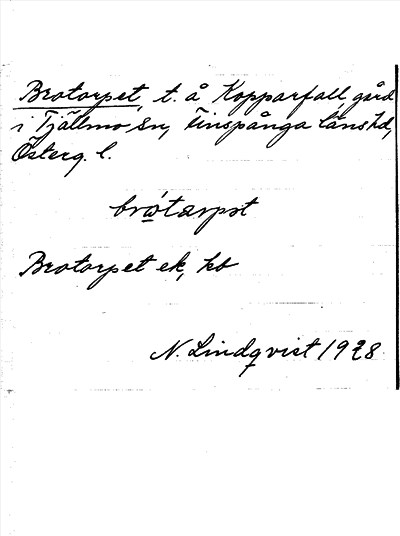 Brotorpet, t. å Kopparfall, gård
i Tjällmo sn, Finspånga länshd,
Österg. l.
brωtærpət
Brotorpet ek, kb
N. Lindqvist 1928